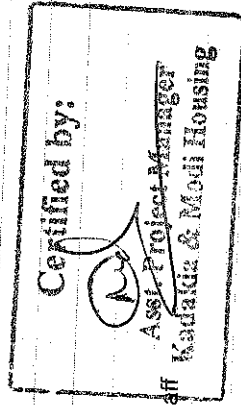 Certified by:
Asst. Project Manager
Kadakia & Modi Housing
aff